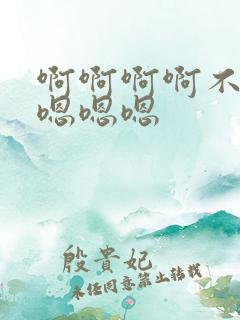 啊啊啊啊不
嗯嗯嗯
殷貴妃
未经同意禁止转载